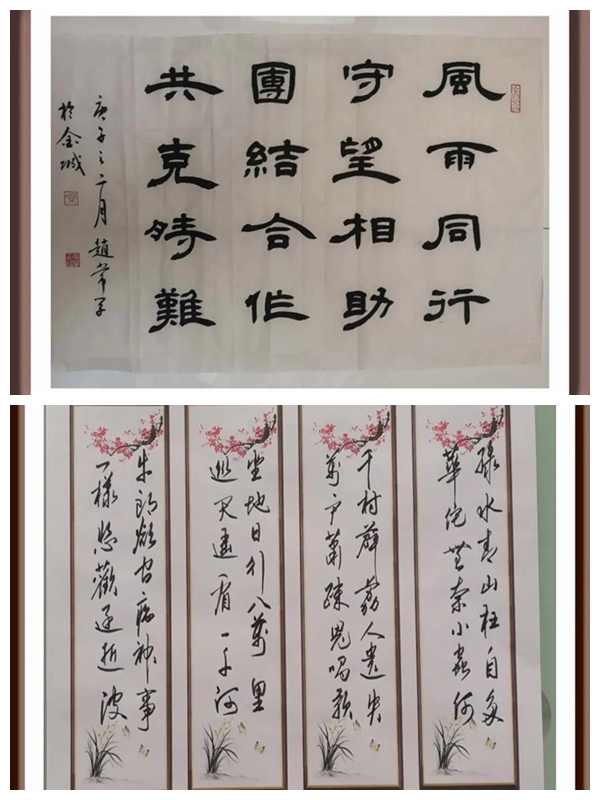 風雨同行
守望相助
團結合作
共克時難
庚子之二月趙常
於金城
綠水青山枉自多
華佗無奈小蟲何
千村薜荔人遺矢
萬户蕭疎鬼唱歌
坐地日行八萬里
巡天遥看一千河
牛郎欲問瘟神事
一樣悲歡逐逝波